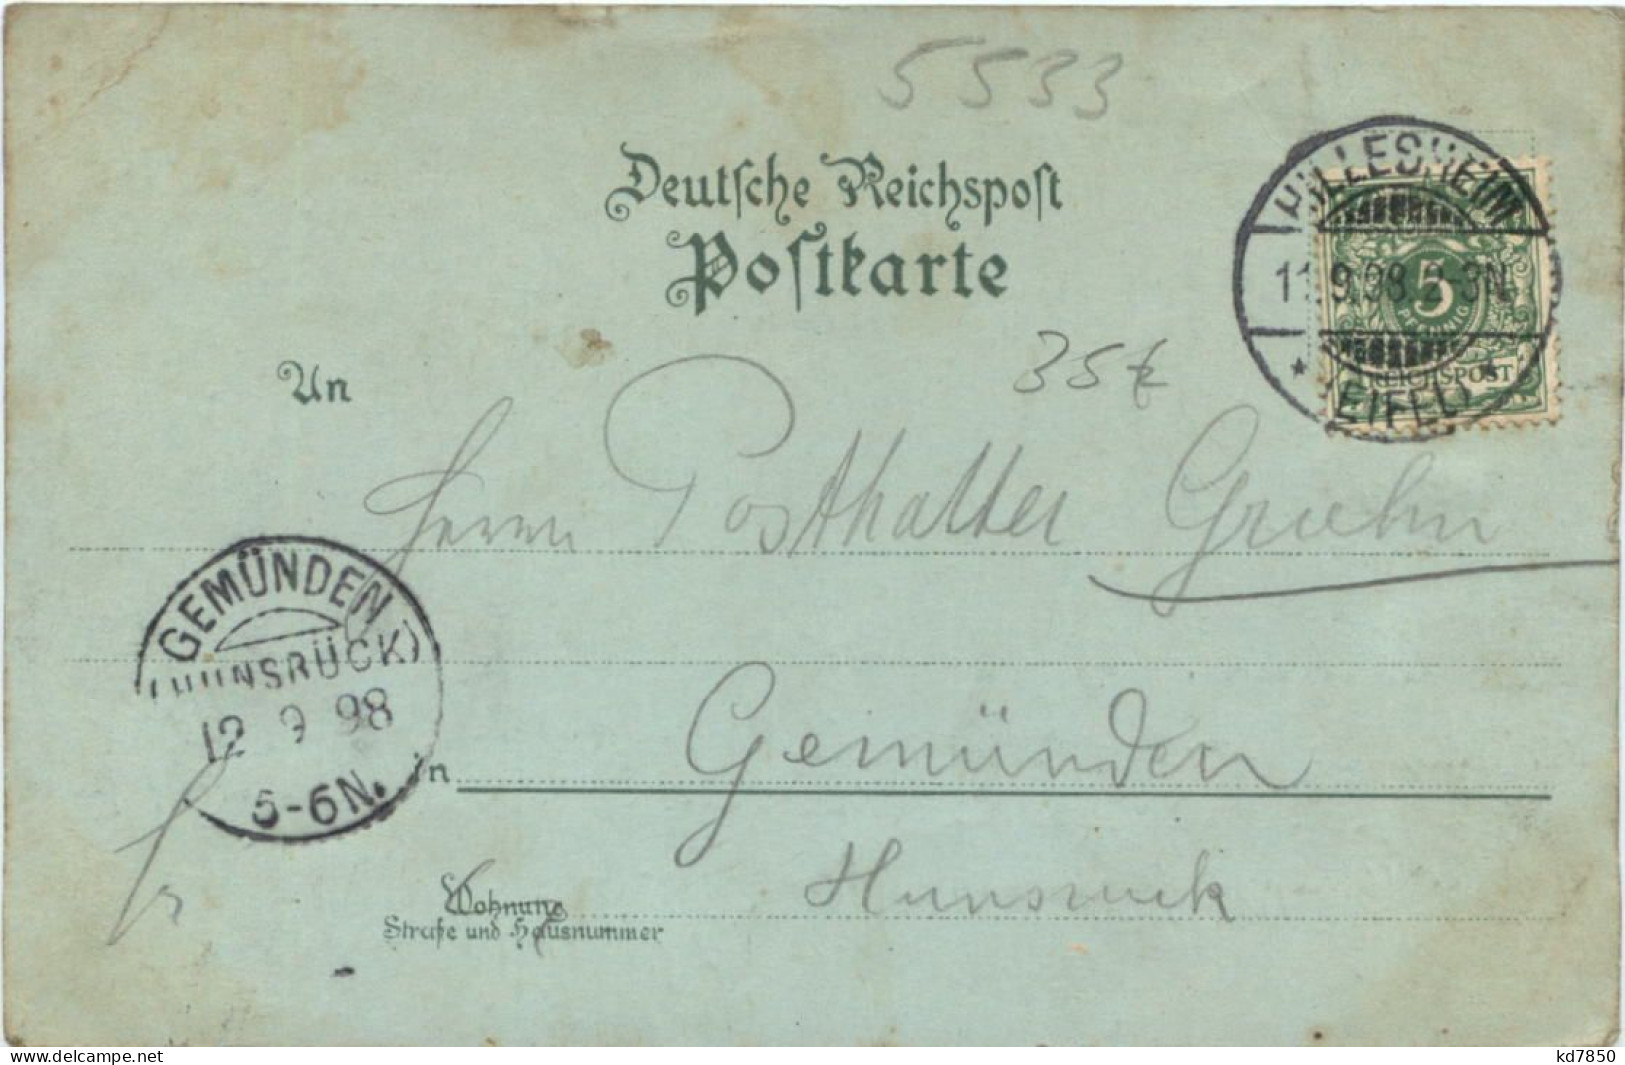 5533
Deutsche Reichspost
Postkarte
HILLESHEIM
11.9.98.2-3N
* (EIFEL) *
5
PFENNIG
REICHSPOST
35€
An
Herrn Posthalter
GEMÜNDEN
(HUNSRÜCK)
12 9 98
5-6N.
in Gemünden
Hunsrück
Wohnung
Straße und Hausnummer
www.delcampe.net
kd7850